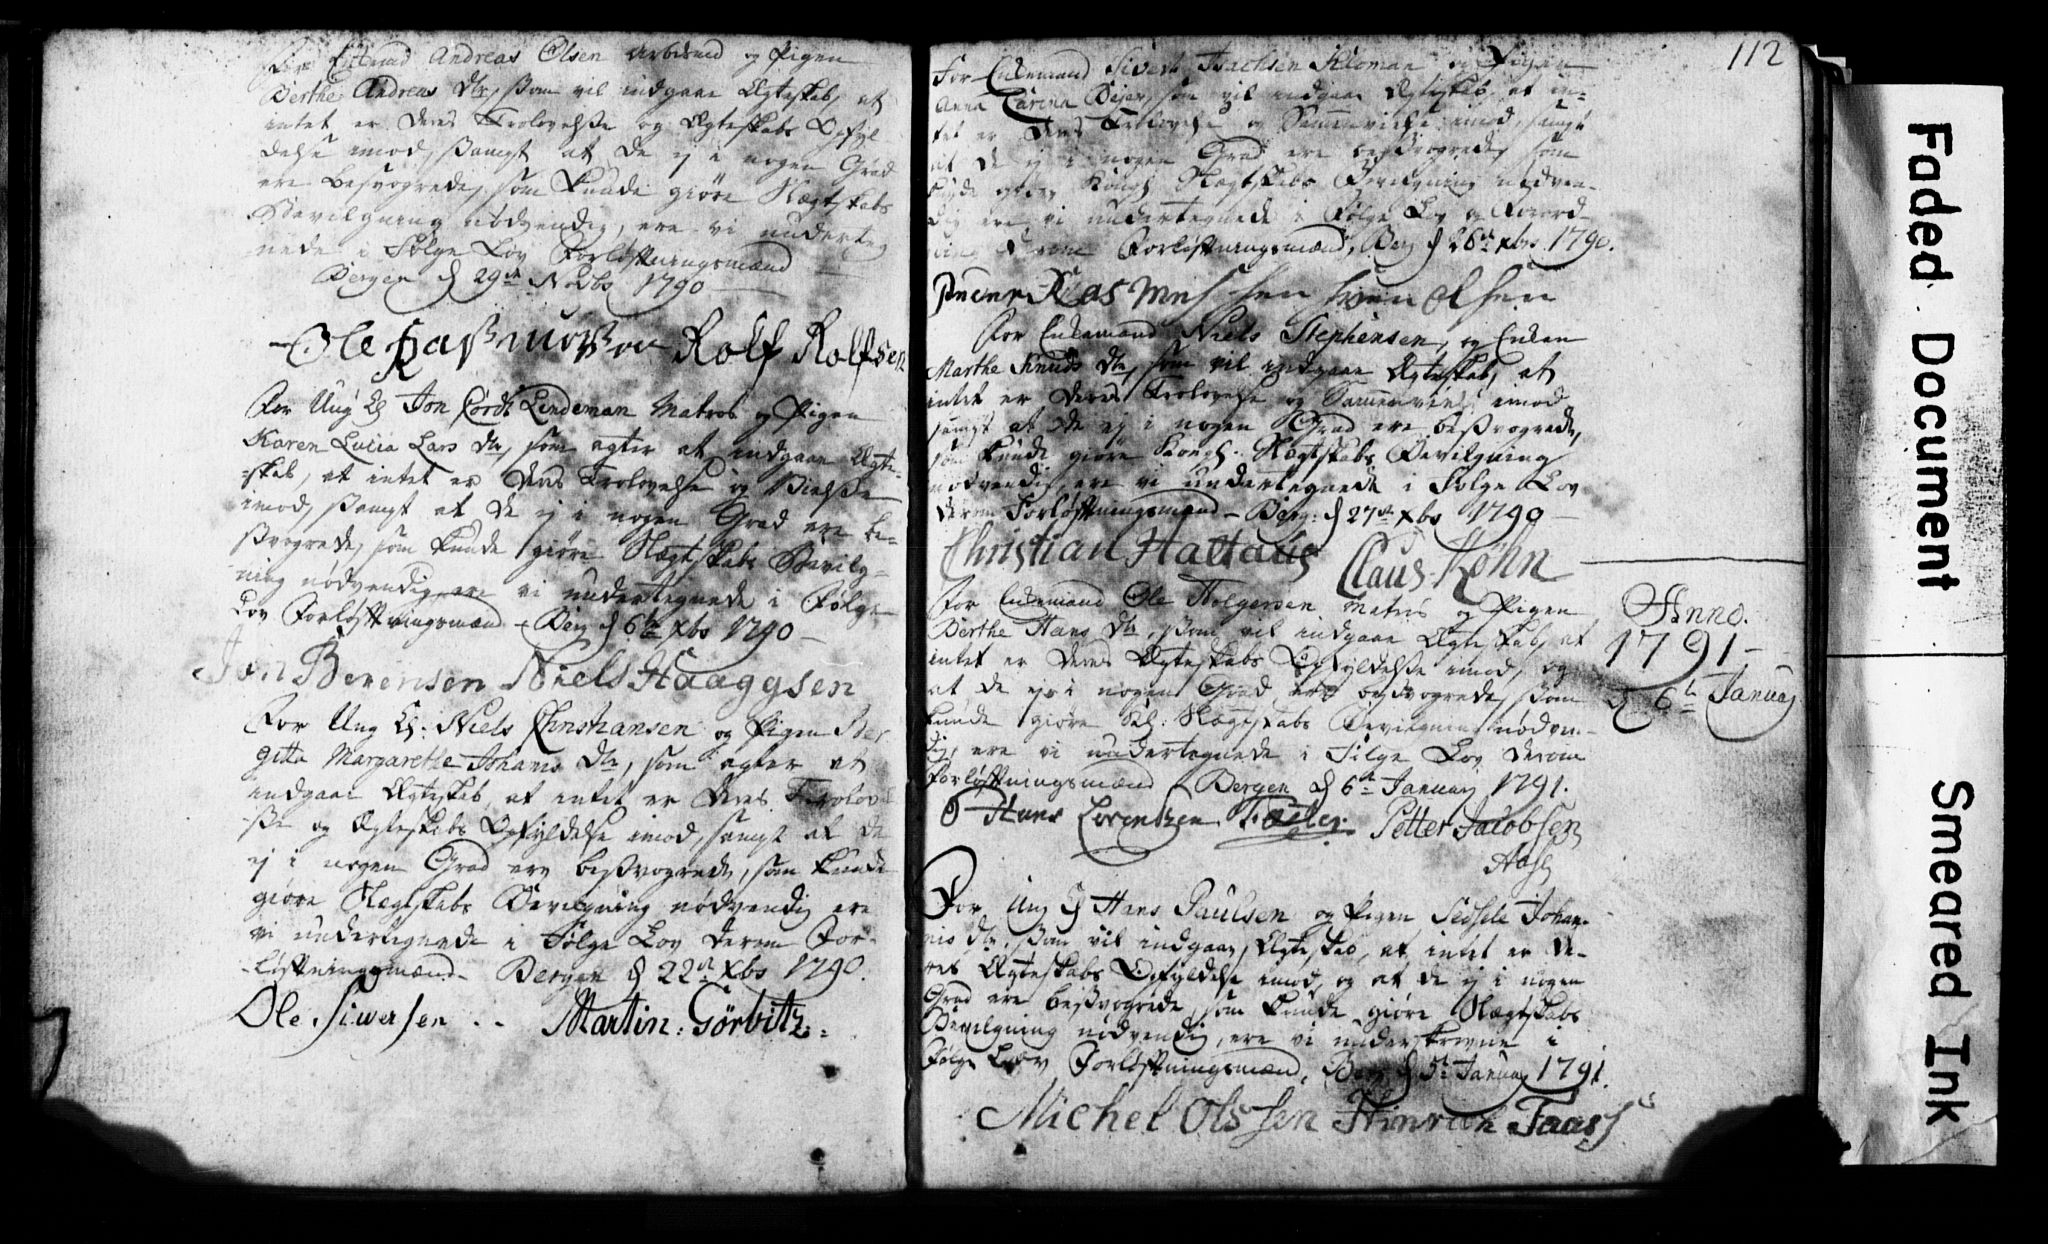 For Enkemand Andreas Olsen Arbdsmd og Pigen
Berthe Andreas Dtr, som vil indgaae Ægteskab, at
intet er deres Trolovelse og Ægteskabs Opfyl
delse imod, samt at de ej i nogen Grad
ere besvogrede, som kunde giøre Slægtskabs
Bevilgning nødvendig, ere vi underteg
nede i Følge Lov Forløftningsmænd
Bergen d 29de Novbs 1790
Ole Rasmussen Rolf Rolfsen
For Ung K Jon Cordt Lindeman Matros og Pigen
Karen Lucia Lars Dtr, som agter at indgaae Ægte-
skab, at intet er deres Trolovelse og Vielse
imod, samt at de ej i nogen Grad ere be-
svogrede, som kunde giøre Slægtskabs Bevilg-
ning nødvendig, ere vi undertegnede i Følge
Lov Forløftningsmænd - Berg d 6te Xbs 1790 -
Jon Berensen Niels Haaggsen
For Ung K: Niels Christiansen og Pigen Ber
gitta Margarethe Johanis Dtr, som agter at
indgaae Ægteskab, at intet er deres Trolovel
se og Ægteskabs Opfyldelse imod, samt at de
ej i nogen Grad ere besvogrede, som kunde
giøre Slægtskabs Bevilgning nødvendig ere
vi undertegnede i Følge Lov derom For-
løftningsmænd - Bergen d 22de Xbs 1790.
Ole Siwersen .. Martin: Görbitz:
112
For Enkemand Sivert og Pigen
Anna Carina som vil indgaae Ægteskab, at in-
tet er deres Trolovelse og Samenvielse imod, samt
at de ej i nogen Grad ere besvogrede, som
kunde giøre Kongl Slægtskabs Bevilgning nødven-
dig ere vi undertegnede i Følge Lov og Forord-
ning derom Forløftningsmænd, Berg d 26de Xbs 1790.
Rasmussen Olsen
For Enkemand Niels Stephensen, og Enken
Marthe Knuds Dtr, som vil indgaae Ægteskab, at
intet er deres Trolovelse og Samenvielse imod
samt at de ej i nogen Grad ere besvogrede,
som kunde giøre Kongl. Slægtskabs Bevilgning
nødvendig, ere vi undertegnede i Følge Lov
derom Forløftningsmænd - Berg: d 27de Xbs 1790 -
Christian Haltaus Claus Köhn
Anno.
1791 -
d 6te Januarj
For Enkemand Ole Holgersen Matros og Pigen
Berthe Hans Dtr, som vil indgaae Ægteskab, at
intet er deres Ægteskabs Opfyldelse imod, og
at de ej i nogen Grad ere besvogrede, som
kunde giøre Kl: Slægtskabs Bevilgning nødven-
dig, ere vi undertegnede i Følge Lov derom
Forløftningsmænd Bergen d 6te Januarj 1791.
Hans Lorentzen Petter Jacobsen
For Ung K Hans Paulsen og Pigen Sidsele Johan-
nis Dtr, som vil indgaae Ægteskab, at intet er de-
res Ægteskabs Opfyldelse imod, og at de ej i nogen
Grad ere besvogrede, som kunde giøre Slægtskabs
Bevilgning nødvendig, ere vi underskrevne i
Følge Lov Forløftningsmænd, Berg d Januarj 1791.
Michel Olssen Hinrich Faass
Faded Document
Smeared Ink